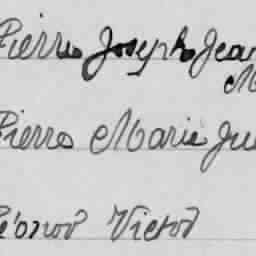 Pierre Joseph Jean
M
Pierre Marie Ju
Léonor Victor